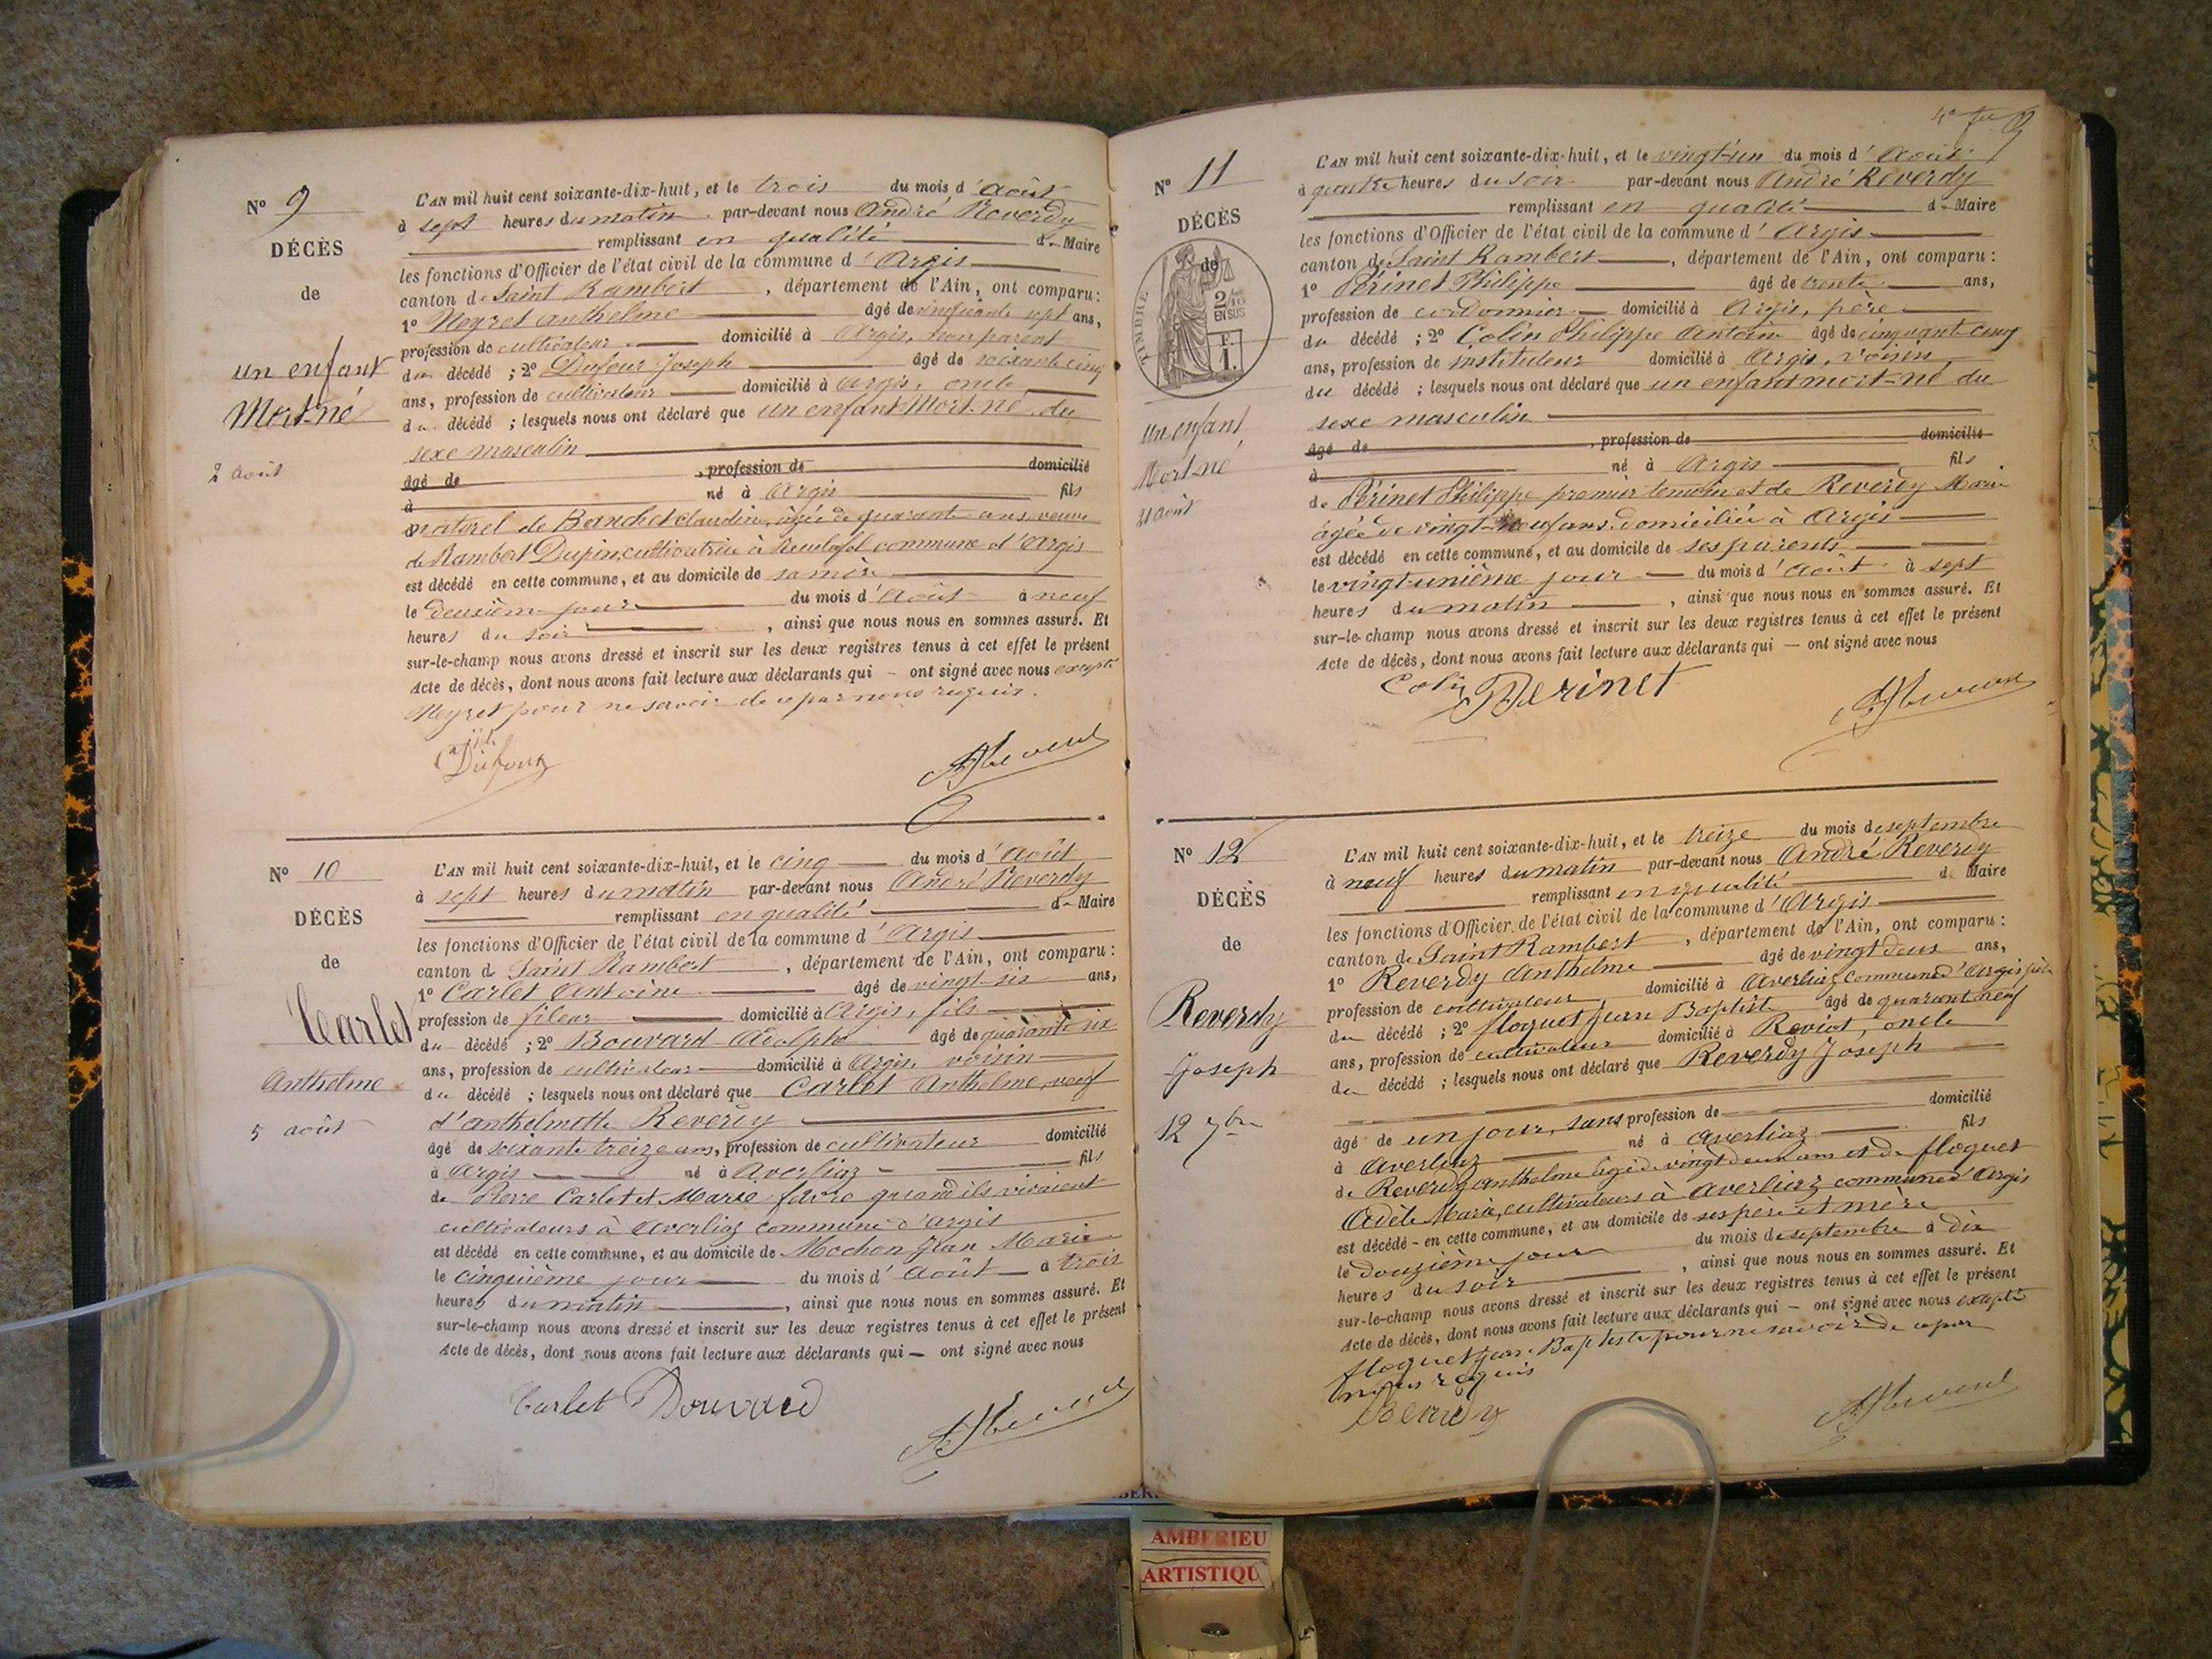 N° 9
DÉCÈS
de
un enfant
Mort-né
2 août
L'AN mil huit cent soixante-dix-huit, et le trois du mois d'août
à sept heures du matin par-devant nous André Reverdy
remplissant en qualité de Maire
les fonctions d'Officier de l'état civil de la commune d'Argis
canton de Saint Rambert, département de l'Ain, ont comparu :
1° Neyret anthelme âgé de cinquante sept ans,
profession de cultivateur domicilié à Argis, non parent
du décédé ; 2° Dufour Joseph âgé de soixante cinq
ans, profession de cultivateur domicilié à Argis, oncle
du décédé ; lesquels nous ont déclaré que un enfant Mort-né du
sexe masculin
âgé de , profession de domicilié
à né à Argis fils
naturel de Banchet claudine, âgée de quarante ans, veuve
de Rambert Dupin, cultivatrice à commune d'Argis
est décédé en cette commune, et au domicile de sa mère
le deuxième jour du mois d'Août à neuf
heures du soir, ainsi que nous nous en sommes assuré. Et
sur-le-champ nous avons dressé et inscrit sur les deux registres tenus à cet effet le présent
Acte de décès, dont nous avons fait lecture aux déclarants qui — ont signé avec nous excepté
Neyret pour ne savoir de ce par nous requis.
Dufour
N° 10
DÉCÈS
de
Carlet
Anthelme
5 août
L'AN mil huit cent soixante-dix-huit, et le cinq du mois d'Août
à sept heures du matin par-devant nous André Reverdy
remplissant en qualité de Maire
les fonctions d'Officier de l'état civil de la commune d'Argis
canton de Saint Rambert, département de l'Ain, ont comparu :
1° Carlet Antoine âgé de vingt-six ans,
profession de fileur domicilié à Argis, fils
du décédé ; 2° Bouvard Adolphe âgé de quarante six
ans, profession de cultivateur domicilié à Argis, voisin
du décédé ; lesquels nous ont déclaré que Carlet Anthelme, veuf
d'anthelmette Reverdy
âgé de soixante treize ans, profession de cultivateur domicilié
à Argis né à Averliaz fils
de Pierre Carlet et Marie favre quand ils vivaient
cultivateurs à Averliaz commune d'Argis
est décédé en cette commune, et au domicile de Mochon Jean Marie
le cinquième jour du mois d'Août à trois
heures du matin, ainsi que nous nous en sommes assuré. Et
sur-le-champ nous avons dressé et inscrit sur les deux registres tenus à cet effet le présent
Acte de décès, dont nous avons fait lecture aux déclarants qui — ont signé avec nous
Carlet Bouvard
N° 11
DÉCÈS
de
TIMBRE
2/10
EN SUS
F.
1.
un enfant
Mort-né
21 août
L'AN mil huit cent soixante-dix-huit, et le vingt-un du mois d'Août
à quatre heures du soir par-devant nous André Reverdy
remplissant en qualité de Maire
les fonctions d'Officier de l'état civil de la commune d'Argis
canton de Saint Rambert, département de l'Ain, ont comparu :
1° Périnet Philippe âgé de trente ans,
profession de cordonnier domicilié à Argis, père
du décédé ; 2° Colin Philippe Antoine âgé de cinquante-cinq
ans, profession de instituteur domicilié à Argis, voisin
du décédé ; lesquels nous ont déclaré que un enfant mort-né du
sexe masculin
âgé de , profession de domicilié
à né à Argis fils
de Périnet Philippe premier temoin et de Reverdy Marie
âgée de vingt-neuf ans, domiciliée à Argis
est décédé en cette commune, et au domicile de ses parents
le vingt-unième jour du mois d'Août à sept
heures du matin, ainsi que nous nous en sommes assuré. Et
sur-le-champ nous avons dressé et inscrit sur les deux registres tenus à cet effet le présent
Acte de décès, dont nous avons fait lecture aux déclarants qui — ont signé avec nous
Colin Périnet
N° 12
DÉCÈS
de
Reverdy
Joseph
12 7bre
L'AN mil huit cent soixante-dix-huit, et le treize du mois de septembre
à neuf heures du matin par-devant nous André Reverdy
remplissant en qualité de Maire
les fonctions d'Officier de l'état civil de la commune d'Argis
canton de Saint Rambert, département de l'Ain, ont comparu :
1° Reverdy Anthelme âgé de vingt deux ans,
profession de cultivateur domicilié à Averliaz commune d'Argis père
du décédé ; 2° floquet Jean Baptiste âgé de quarante neuf
ans, profession de cultivateur domicilié à oncle
du décédé ; lesquels nous ont déclaré que Reverdy Joseph
âgé de un jour, sans profession de domicilié
à Averliaz né à Averliaz fils
de Reverdy anthelme âgé de vingt deux ans et de floquet
Adèle Marie, cultivateurs à Averliaz commune d'Argis
est décédé en cette commune, et au domicile de ses père et mère
le douzième jour du mois de septembre à dix
heures du soir, ainsi que nous nous en sommes assuré. Et
sur-le-champ nous avons dressé et inscrit sur les deux registres tenus à cet effet le présent
Acte de décès, dont nous avons fait lecture aux déclarants qui — ont signé avec nous excepté
floquet Jean Baptiste pour ne savoir de ce par
nous requis
Reverdy
AMBERIEU
ARTISTIQU